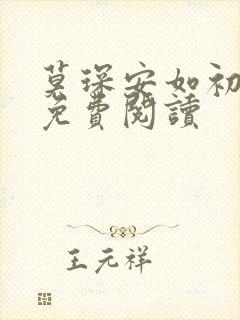 莫琛安如初
免費閱讀
王元祥